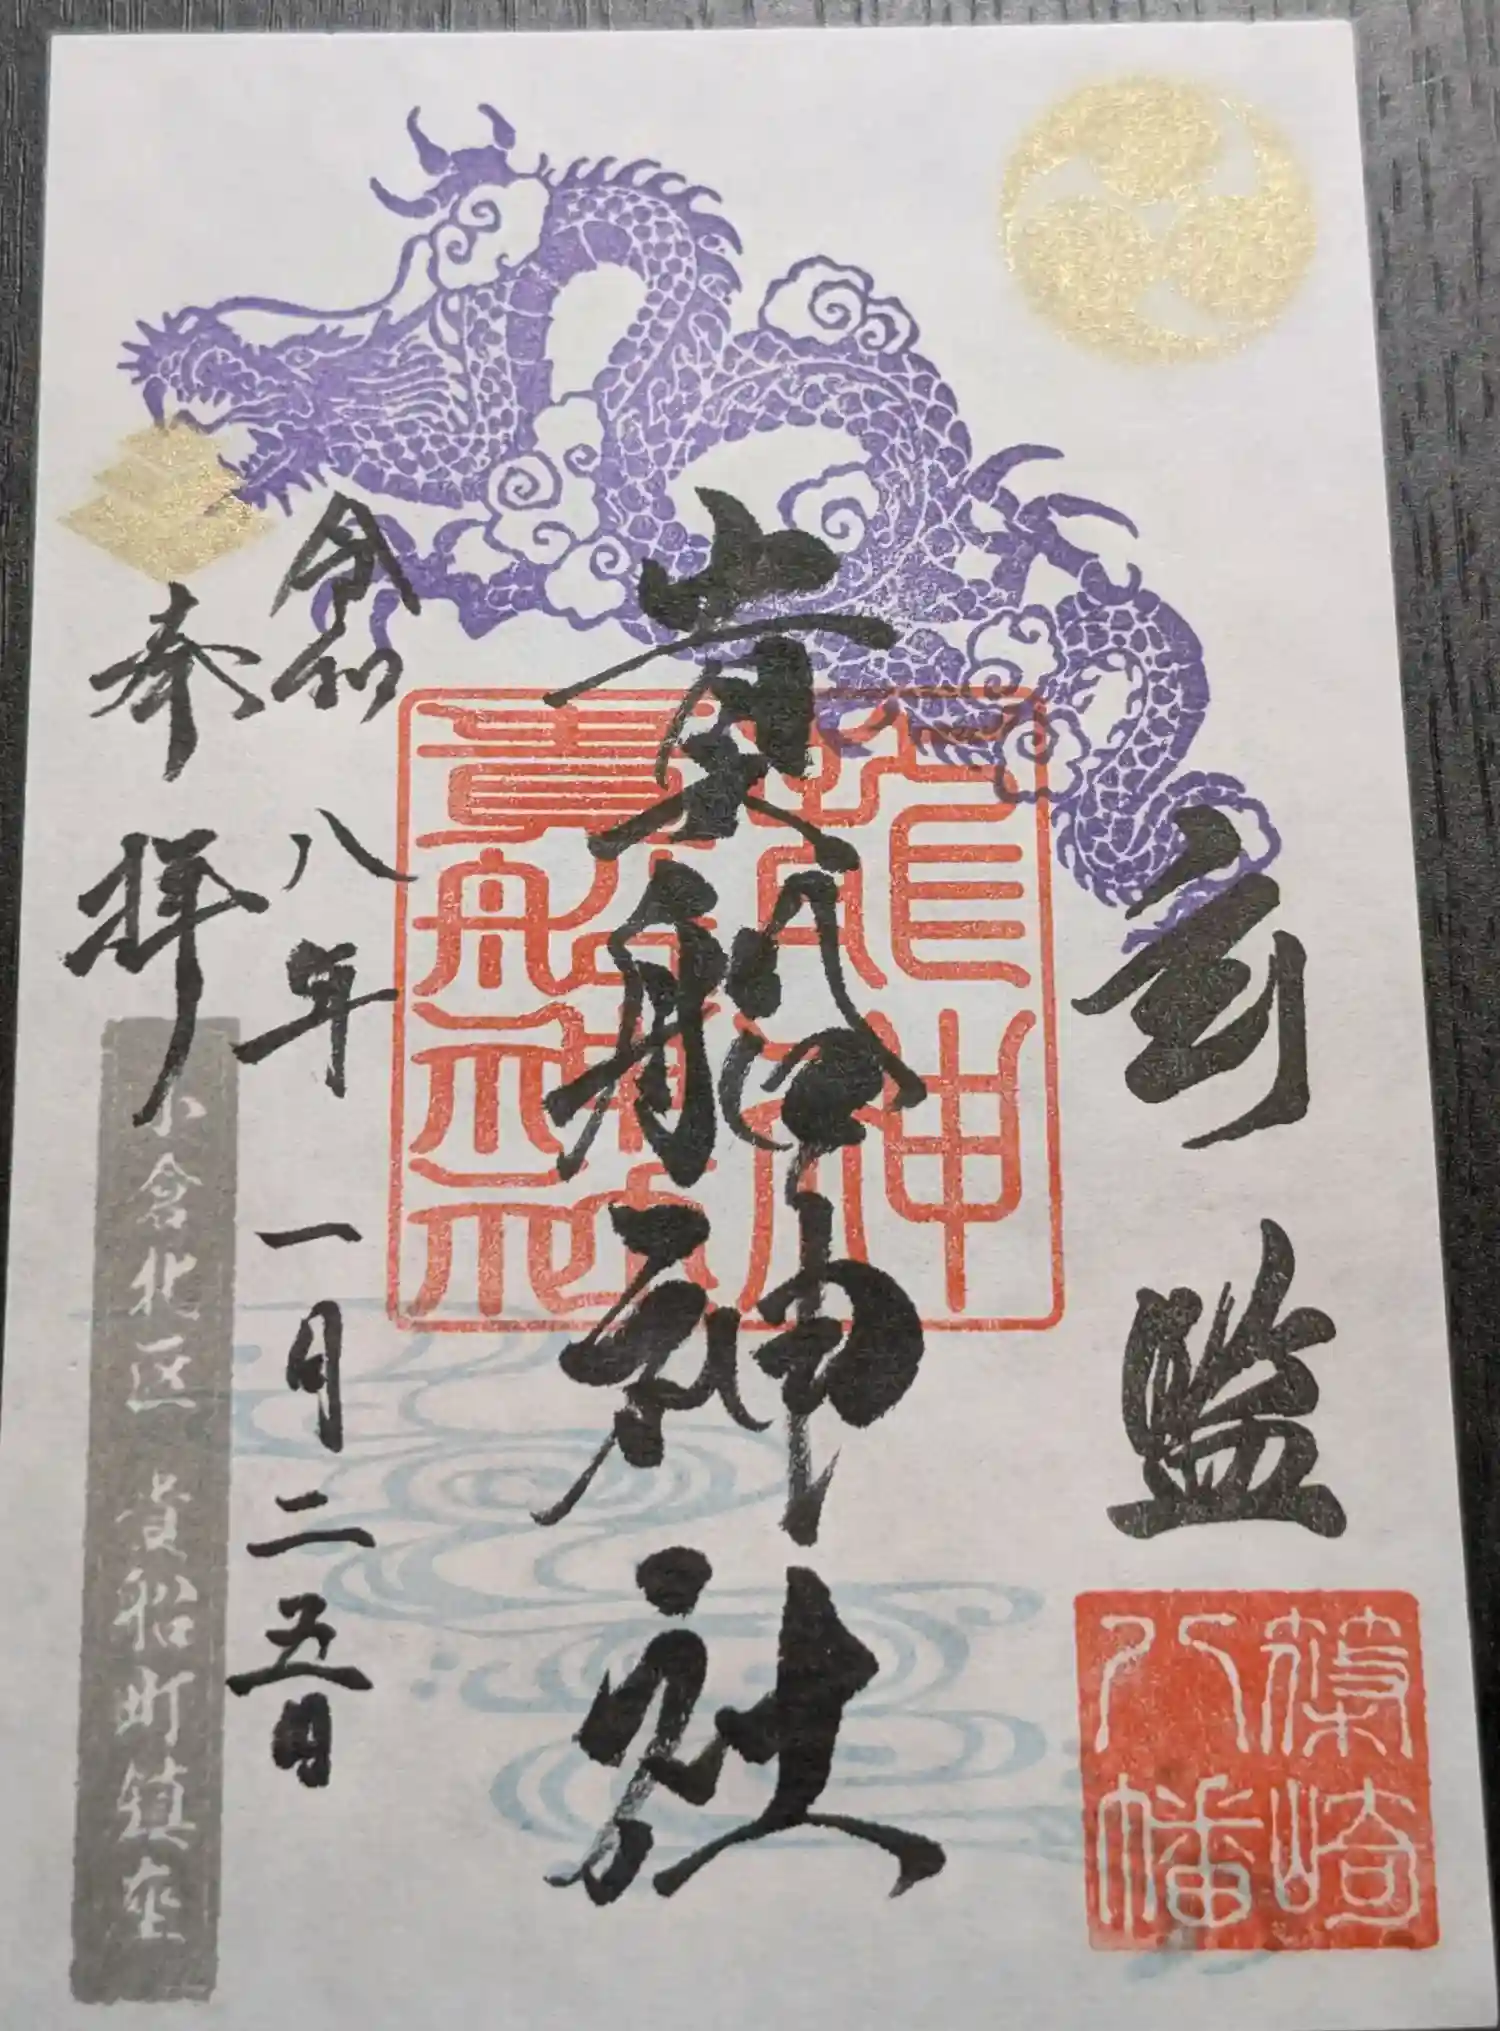 監
篠崎
八幡
貴船神社
龍神
貴船神社
令和八年一月二五日
奉拝
小倉北区 貴船町鎮座